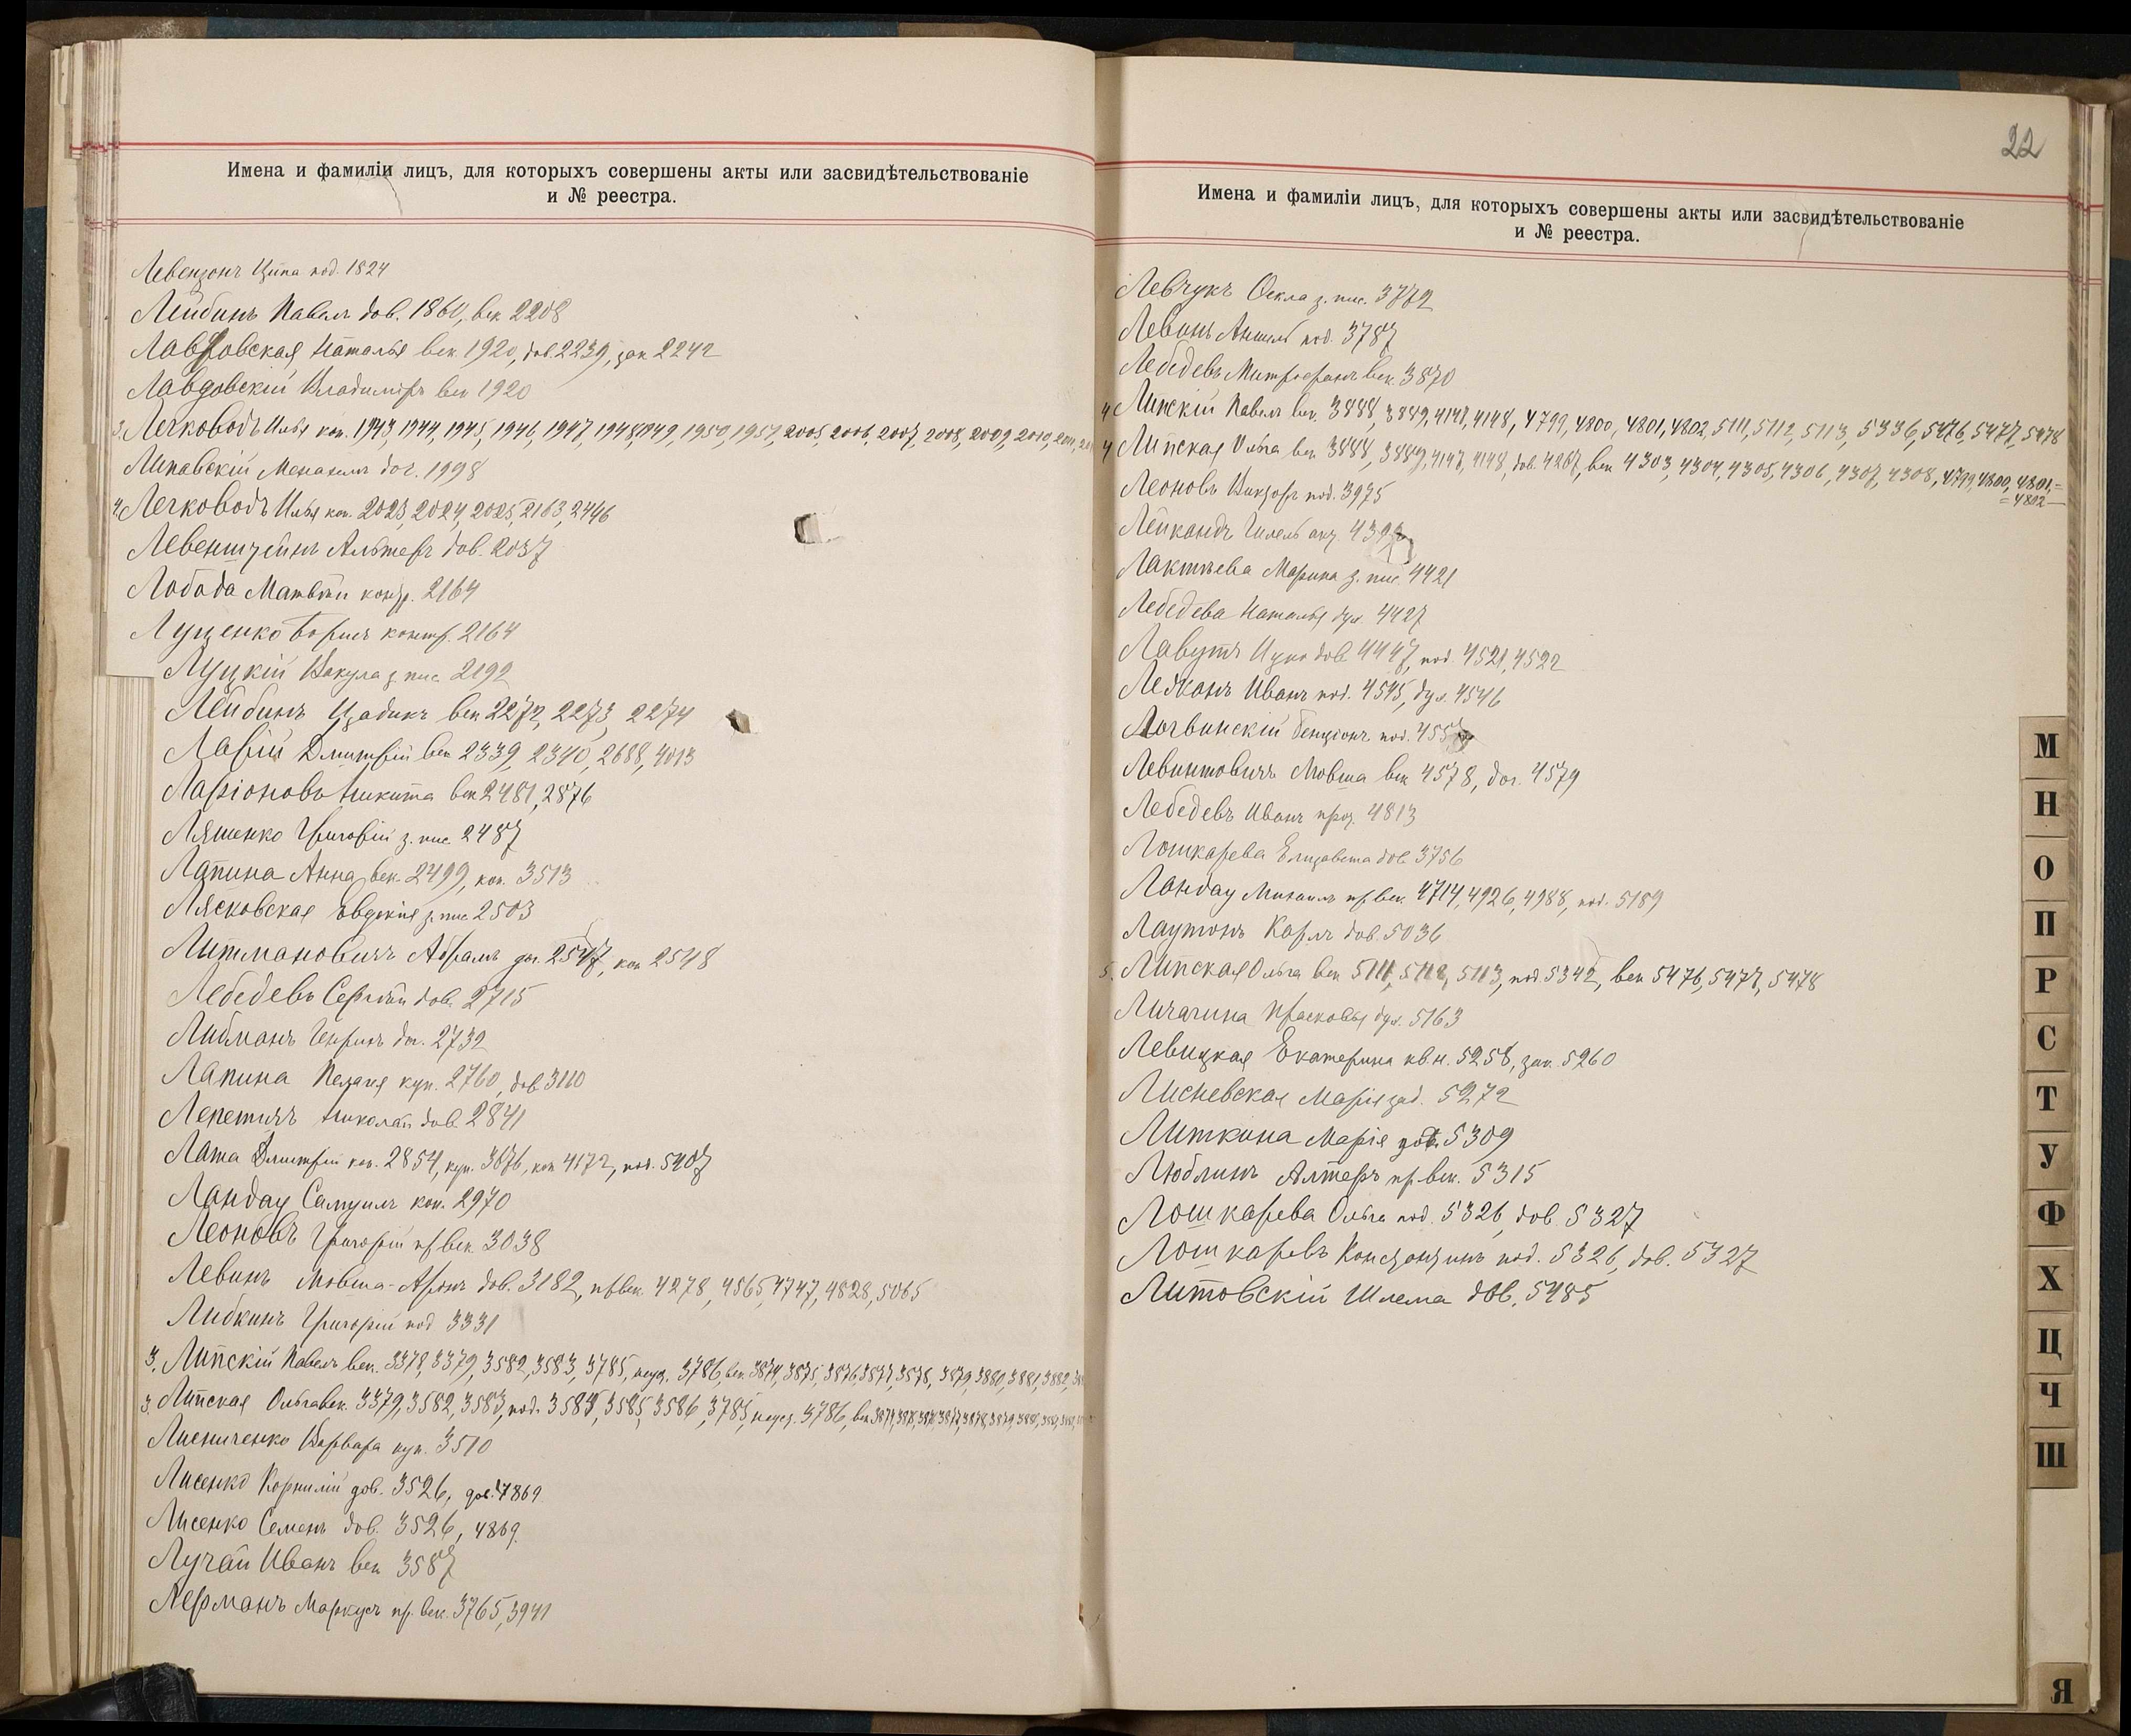 Имена и фамиліи лицъ, для которыхъ совершены акты или засвидѣтельствованіе
и № реестра.
Левензонъ Ципа под. 1824
Лейбинъ Павелъ дов. 1860, век 2208
Лавдовская Наталья век 1920, дов. 2239, зак 2242
Лавдовскій Владиміръ век 1920
3. Легководъ Илья коп. 1943, 1944, 1945, 1946, 1947, 1948, 1949, 1950, 1951, 2005, 2006, 2007, 2008, 2009, 2010,
Липавскій дог. 1998
4. Легководъ Илья коп. 2023, 2024, 2025, 2163, 2446
Левенштейнъ Альтеръ дов. 2037
Лобода Матвѣй контр. 2164
Луценко Борисъ контр. 2164
Луцкій Вакула з. пис 2192
Лейбинъ Цадикъ век 2272, 2273, 2274
Ларій Дмитрій век 2339, 2340, 2688, 4013
Ларіоновъ Никита век 2481, 2876
Ляшенко Григорій з. пис. 2487
Лапина Анна век. 2499, коп. 3513
Лясковская Евдокія з. пис 2503
Литмановичъ Абрамъ дог. 2547, коп 2548
Лебедевъ Сергѣй дов. 2715
Либманъ Генрихъ дог. 2732
Лапина Пелагея куп. 2760, дов 3110
Лепетичъ Николай дов. 2841
Лата Дмитрій коп. 2854, куп. 3676, коп 4172, под. 5407
Ландау Самуилъ коп. 2970
Леоновъ Григорій пр век 3038
Левинъ Мовша-Аронъ дов. 3182, пр век. 4278, 4565, 4747, 4828, 5065
Либкинъ Григорій под 3331
3. Липскій Павелъ век. 3378, 3379, 3582, 3583, 3785, 3786, век. 3874, 3875, 3876, 3877, 3878, 3879, 3880, 3881, 3882,
3. Липская Ольга век. 3379, 3582, 3583, под. 3584, 3585, 3586, 3785, 3786, век
Лисниченко Варвара куп. 3510
Лисенко Корнилій дов. 3526, дов. 4869.
Лисенко Семенъ дов. 3526, 4869.
Лучай Иванъ век 3587
Лерманъ Маркусъ пр. век. 3765, 3941
22
Имена и фамиліи лицъ, для которыхъ совершены акты или засвидѣтельствованіе
и № реестра.
Левчукъ Ѳекла з. пис. 3772
Левинъ Аншель под. 3787
Лебедевъ Митрофанъ век. 3870
4 Липскій Павелъ век. 3888, 3889, 4147, 4148, 4799, 4800, 4801, 4802, 5111, 5112, 5113, 5336, 5476, 5477, 5478
4 Липская Ольга век 3888, 3889, 4147, 4148, дов. 4267, век 4303, 4304, 4305, 4306, 4307, 4308, 4799, 4800, 4801,=
= 4802 —
Леоновъ Викторъ под. 3975
Лейкандъ Гилель
Лактѣева Марина з. пис. 4421
Лебедева Наталья дух. 4427
Лавутъ Ицко дов 4447, под. 4521, 4522
Лежанъ Иванъ под. 4545, дух. 4546
Логвинскій Бенціонъ под.
Левинтовичъ Мовша век 4578, дог. 4579
Лебедевъ Иванъ 4813
Лошкарева Елизавета дов. 3756
Ландау Михаилъ пр век. 4714, 4926, 4988, под. 5189
Лаутонъ Карлъ дов. 5036
5. Липская Ольга век 5111, 5112, 5113, под. 5342, век 5476, 5477, 5478
Личагина Прасковья дух. 5163
Левицкая Екатерина 5258, зак. 5260
Лисневская Марія 5272
Литкина Марія дов. 5309
Люблинъ Алтеръ пр. век. 5315
Лошкарева Ольга под. 5326, дов. 5327
Лошкаревъ Константинъ под. 5326, дов. 5327
Литовскій Шлема дов. 5485
М
Н
О
П
Р
С
Т
У
Ф
Х
Ц
Ч
Ш
Я